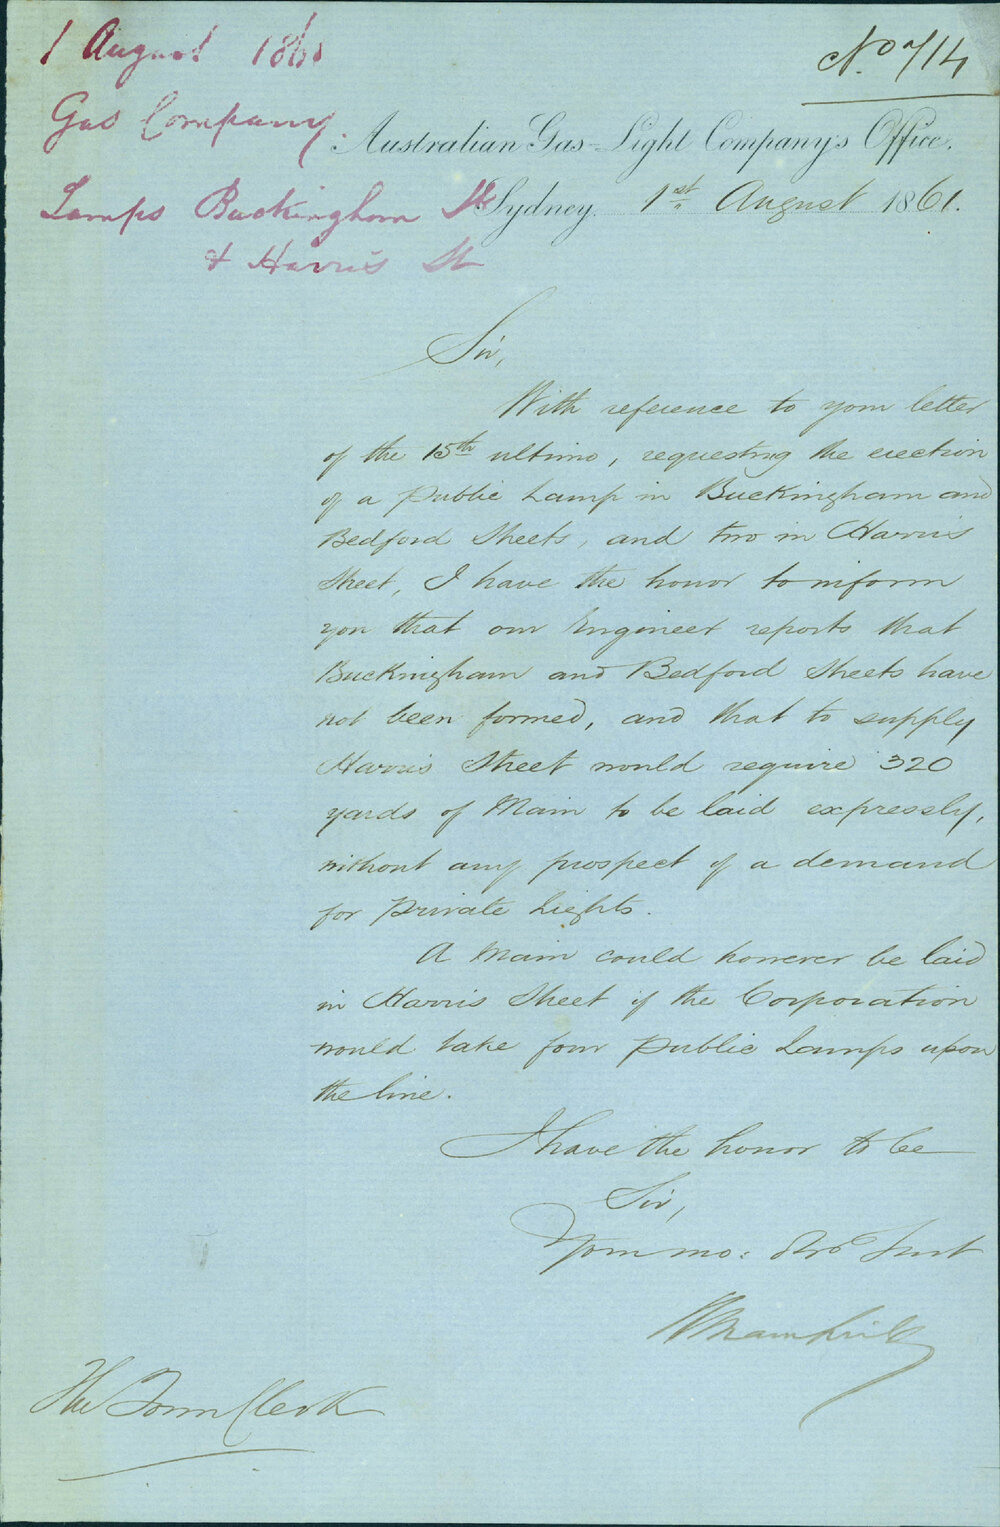 1 August 1861
Gas Company.
Lamps Buckingham St
& Harris St
No 714
Australian Gas-Light Company's Office.
Sydney. 1st August 1861.
Sir,
With reference to your letter
of the 15th ultimo, requesting the erection
of a Public Lamp in Buckingham and
Bedford Streets, and two in Harris
Street, I have the honor to inform
you that our Engineer reports that
Buckingham and Bedford Streets have
not been formed, and that to supply
Harris Street would require 320
yards of Main to be laid expressly,
without any prospect of a demand
for Private Lights.
A Main could however be laid
in Harris Street if the Corporation
would take four Public Lamps upon
the line.
I have the honor to be
Sir,
Your mo: Obt Servt
The Town Clerk